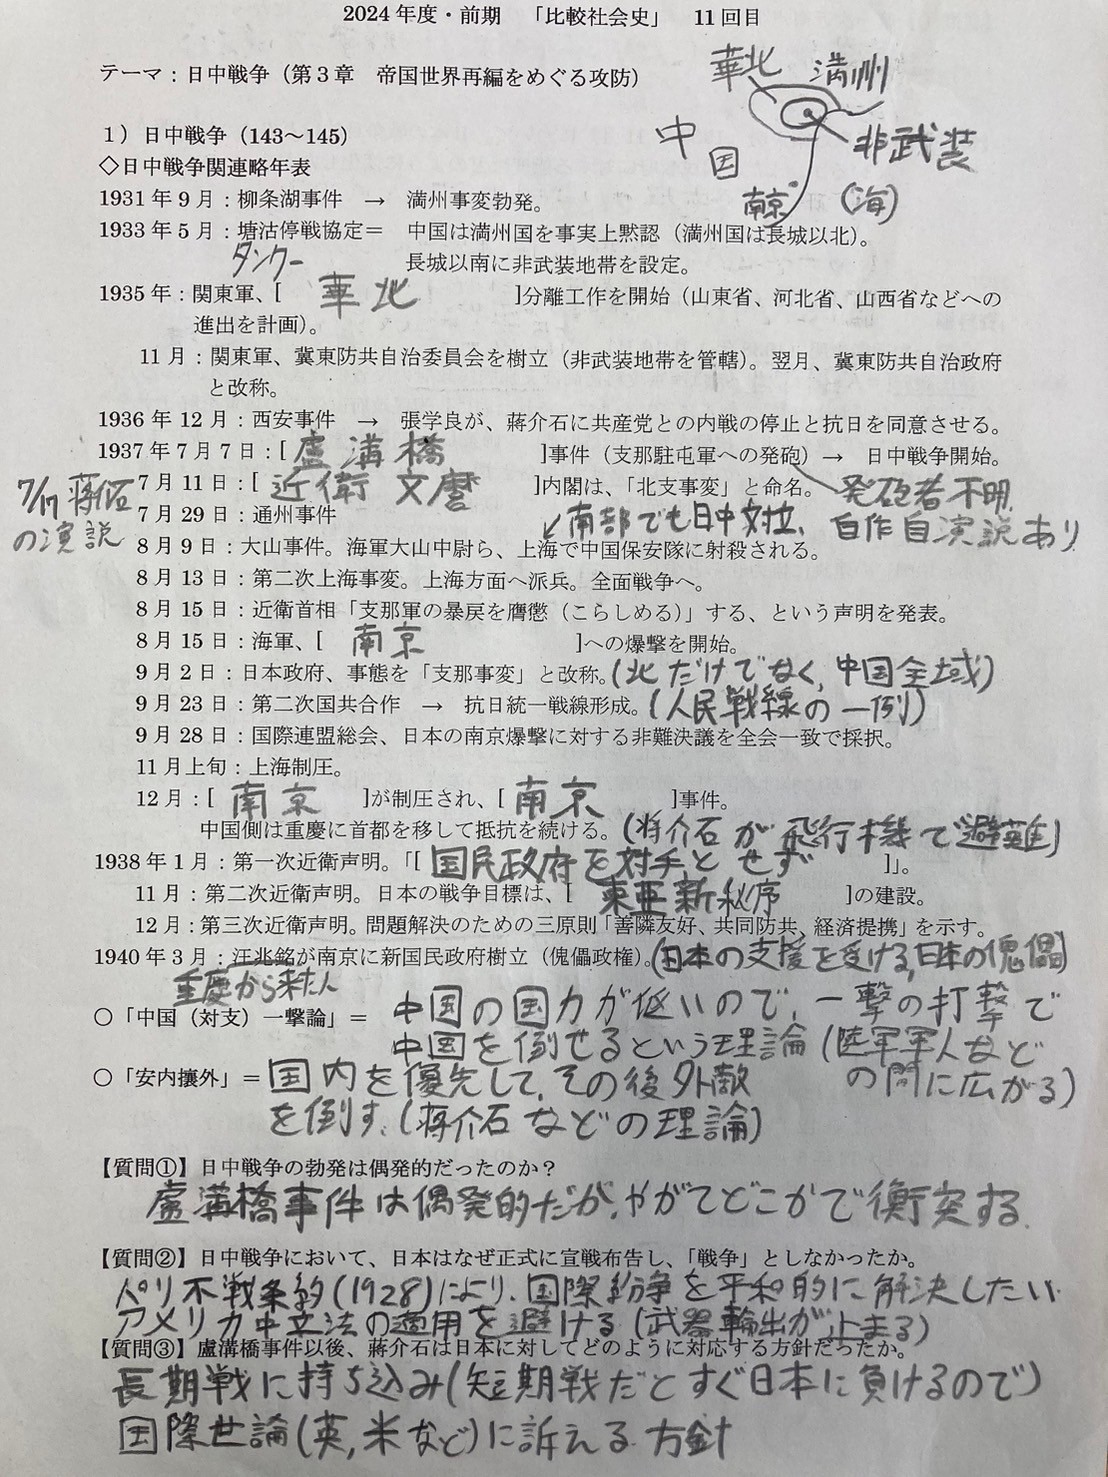 2024年度・前期　「比較社会史」　11回目
テーマ：日中戦争（第３章　帝国世界再編をめぐる攻防）
華北　満州
中国
非武装
南京
(海)
１）日中戦争（143～145）
◇日中戦争関連略年表
1931年9月：柳条湖事件　→　満州事変勃発。
1933年5月：塘沽停戦協定＝　中国は満州国を事実上黙認（満州国は長城以北）。
タンクー
長城以南に非武装地帯を設定。
1935年：関東軍、[　華北　]分離工作を開始（山東省、河北省、山西省などへの
進出を計画）。
11月：関東軍、冀東防共自治委員会を樹立（非武装地帯を管轄）。翌月、冀東防共自治政府
と改称。
1936年12月：西安事件　→　張学良が、蒋介石に共産党との内戦の停止と抗日を同意させる。
1937年7月7日：[　盧溝橋　]事件（支那駐屯軍への発砲）→　日中戦争開始。
7月11日：[　近衛文麿　]内閣は、「北支事変」と命名。
発砲者不明、
自作自演説あり
7/17 蒋介石
の演説
7月29日：通州事件
↙南部でも日中対立、
8月9日：大山事件。海軍大山中尉ら、上海で中国保安隊に射殺される。
8月13日：第二次上海事変。上海方面へ派兵。全面戦争へ。
8月15日：近衛首相「支那軍の暴戻を膺懲（こらしめる）」する、という声明を発表。
8月15日：海軍、[　南京　]への爆撃を開始。
9月2日：日本政府、事態を「支那事変」と改称。(北だけでなく、中国全域)
9月23日：第二次国共合作　→　抗日統一戦線形成。(人民戦線の一例)
9月28日：国際連盟総会、日本の南京爆撃に対する非難決議を全会一致で採択。
11月上旬：上海制圧。
12月：[　南京　]が制圧され、[　南京　]事件。
中国側は重慶に首都を移して抵抗を続ける。(蒋介石が飛行機で避難)
1938年1月：第一次近衛声明。「[　国民政府を対手とせず　]」。
11月：第二次近衛声明。日本の戦争目標は、[　東亜新秩序　]の建設。
12月：第三次近衛声明。問題解決のための三原則「善隣友好、共同防共、経済提携」を示す。
1940年3月：汪兆銘が南京に新国民政府樹立（傀儡政権）。(日本の支援を受ける、日本の傀儡)
重慶から来た人
〇「中国（対支）一撃論」＝　中国の国力が低いので、一撃の打撃で
中国を倒せるという理論(陸軍軍人など
の間に広がる)
〇「安内攘外」＝国内を優先して、その後外敵
を倒す。(蒋介石などの理論)
【質問①】日中戦争の勃発は偶発的だったのか？
盧溝橋事件は偶発的だが、やがてどこかで衝突する。
【質問②】日中戦争において、日本はなぜ正式に宣戦布告し、「戦争」としなかったか。
パリ不戦条約(1928)により、国際紛争を平和的に解決したい
アメリカ中立法の適用を避ける(武器輸出が止まる)
【質問③】盧溝橋事件以後、蒋介石は日本に対してどのように対応する方針だったか。
長期戦に持ち込み(短期戦だとすぐ日本に負けるので)
国際世論(英,米など)に訴える方針